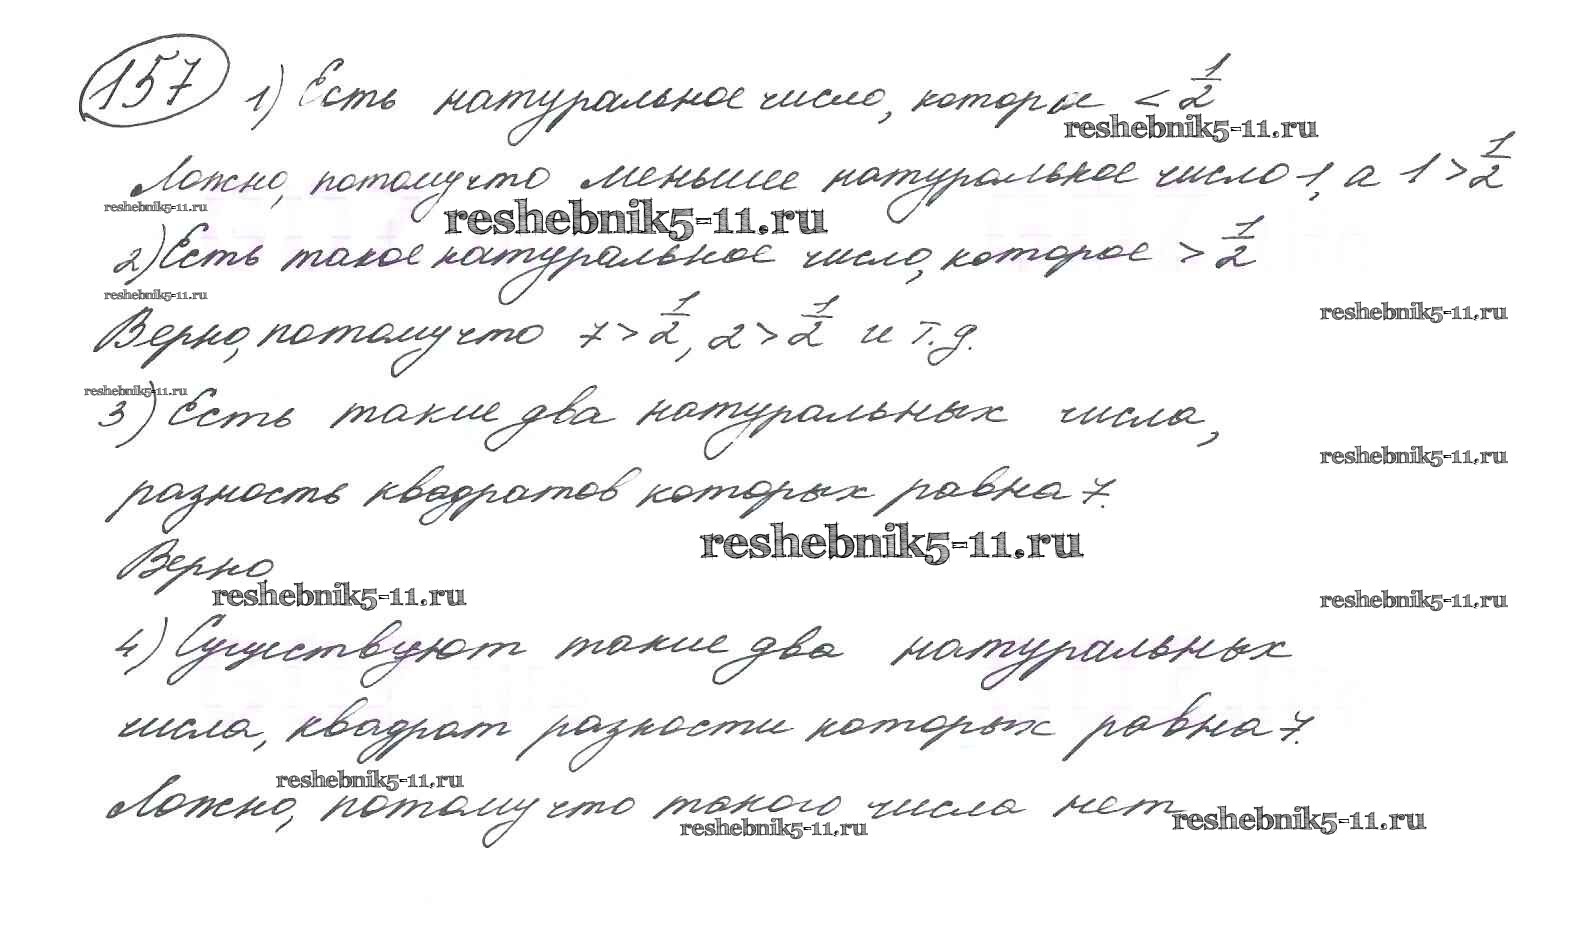 157 1) Есть натуральное число, которое < 1/2
reshebnik5-11.ru
Ложно, потому что меньшее натуральное число 1, а 1 > 1/2
reshebnik5-11.ru
reshebnik5-11.ru
2) Есть такое натуральное число, которое > 1/2
reshebnik5-11.ru
reshebnik5-11.ru
Верно, потому что 7 > 1/2, 2 > 1/2 и т.д.
reshebnik5-11.ru
3) Есть такие два натуральных числа,
reshebnik5-11.ru
разность квадратов которых равна 7.
reshebnik5-11.ru
Верно
reshebnik5-11.ru
reshebnik5-11.ru
4) Существуют такие два натуральных
числа, квадрат разности которых равна 7.
reshebnik5-11.ru
Ложно, потому что такого числа нет
reshebnik5-11.ru
reshebnik5-11.ru